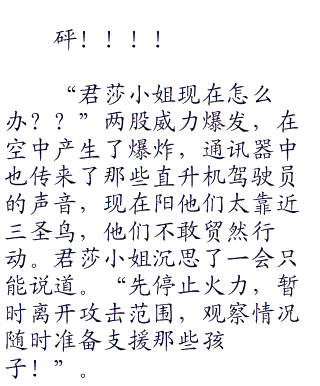 砰！！！！
“君莎小姐现在怎么
办？？”两股威力爆发，在
空中产生了爆炸，通讯器中
也传来了那些直升机驾驶员
的声音，现在阳他们太靠近
三圣鸟，他们不敢贸然行
动。君莎小姐沉思了一会只
能说道。“先停止火力，暂
时离开攻击范围，观察情况
随时准备支援那些孩
子！”。